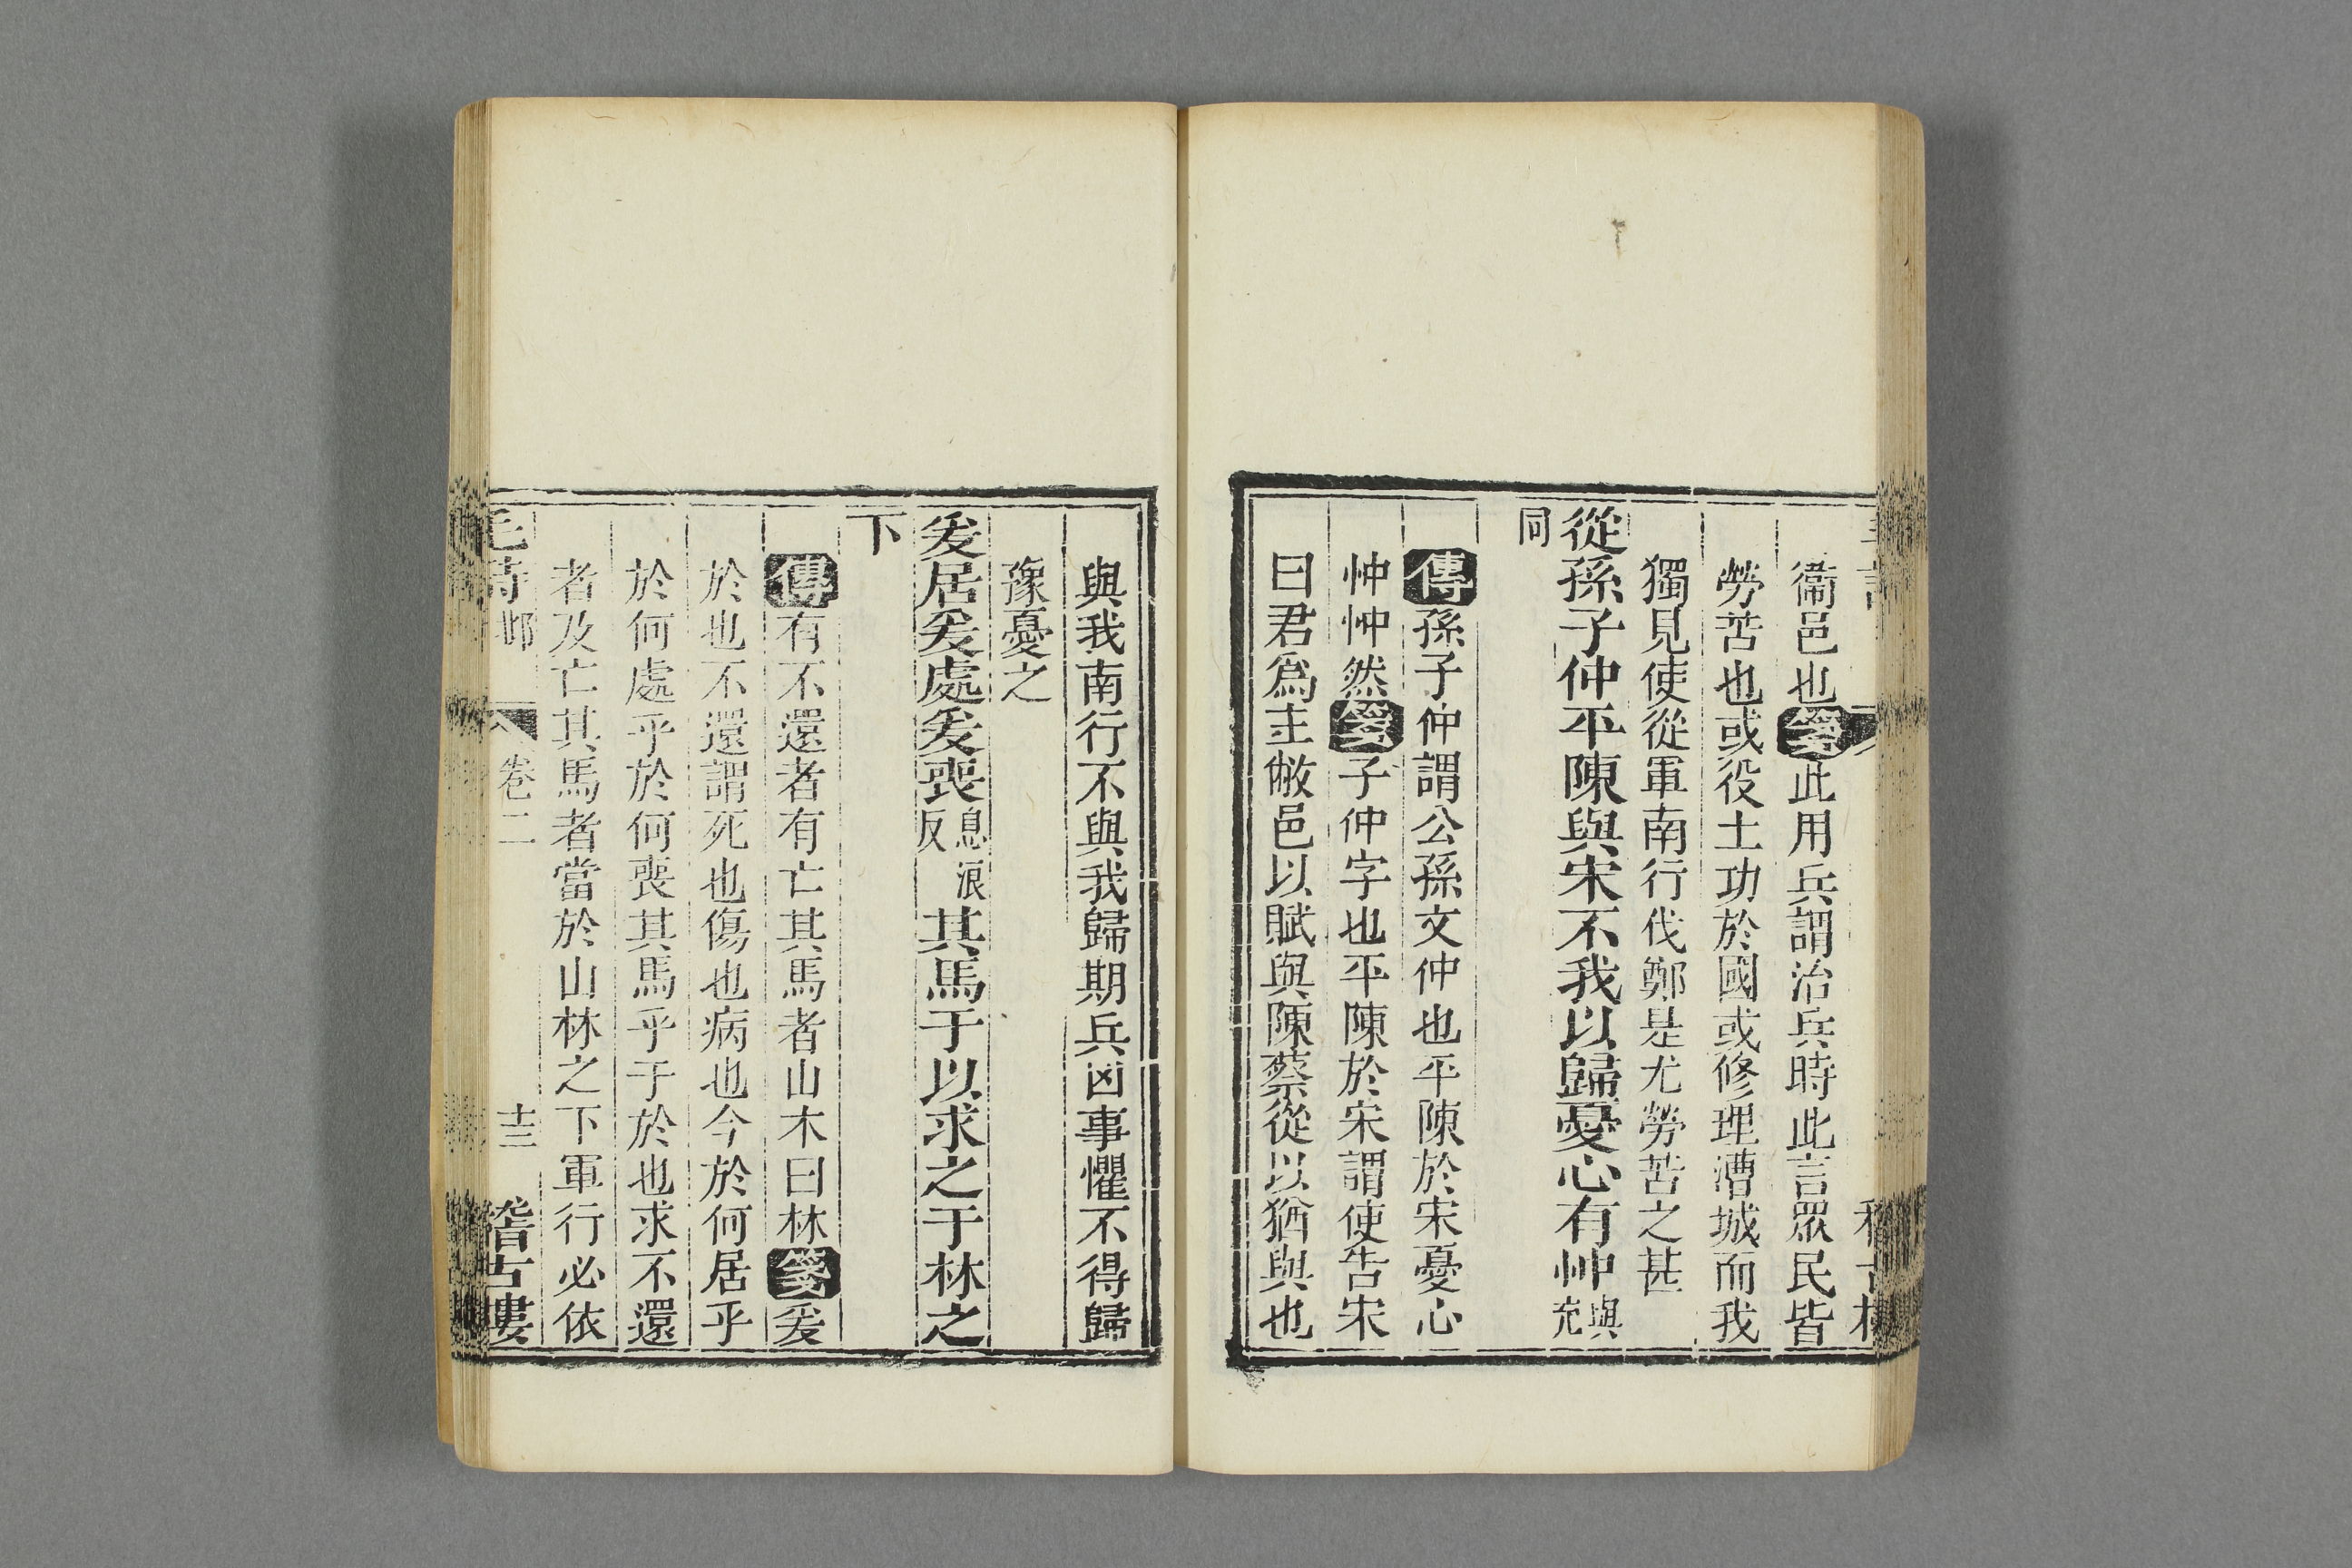 衞邑也箋此用兵謂治兵時此言眾民皆
勞苦也或役土功於國或修理漕城而我
獨見使從軍南行伐鄭是尤勞苦之甚
從孫子仲平陳與宋不我以歸憂心有忡與充
同
傳孫子仲謂公孫文仲也平陳於宋憂心
忡忡然箋子仲字也平陳於宋謂使告宋
曰君爲主敝邑以賦與陳蔡從以猶與也
與我南行不與我歸期兵凶事懼不得歸
豫憂之
爰居爰處爰喪息浪反其馬于以求之于林之
下
傳有不還者有亡其馬者山木曰林箋爰
於也不還謂死也傷也病也今於何居乎
於何處乎於何喪其馬乎于於也求不還
者及亡其馬者當於山林之下軍行必依
毛詩邶 卷二 十三 稽古樓